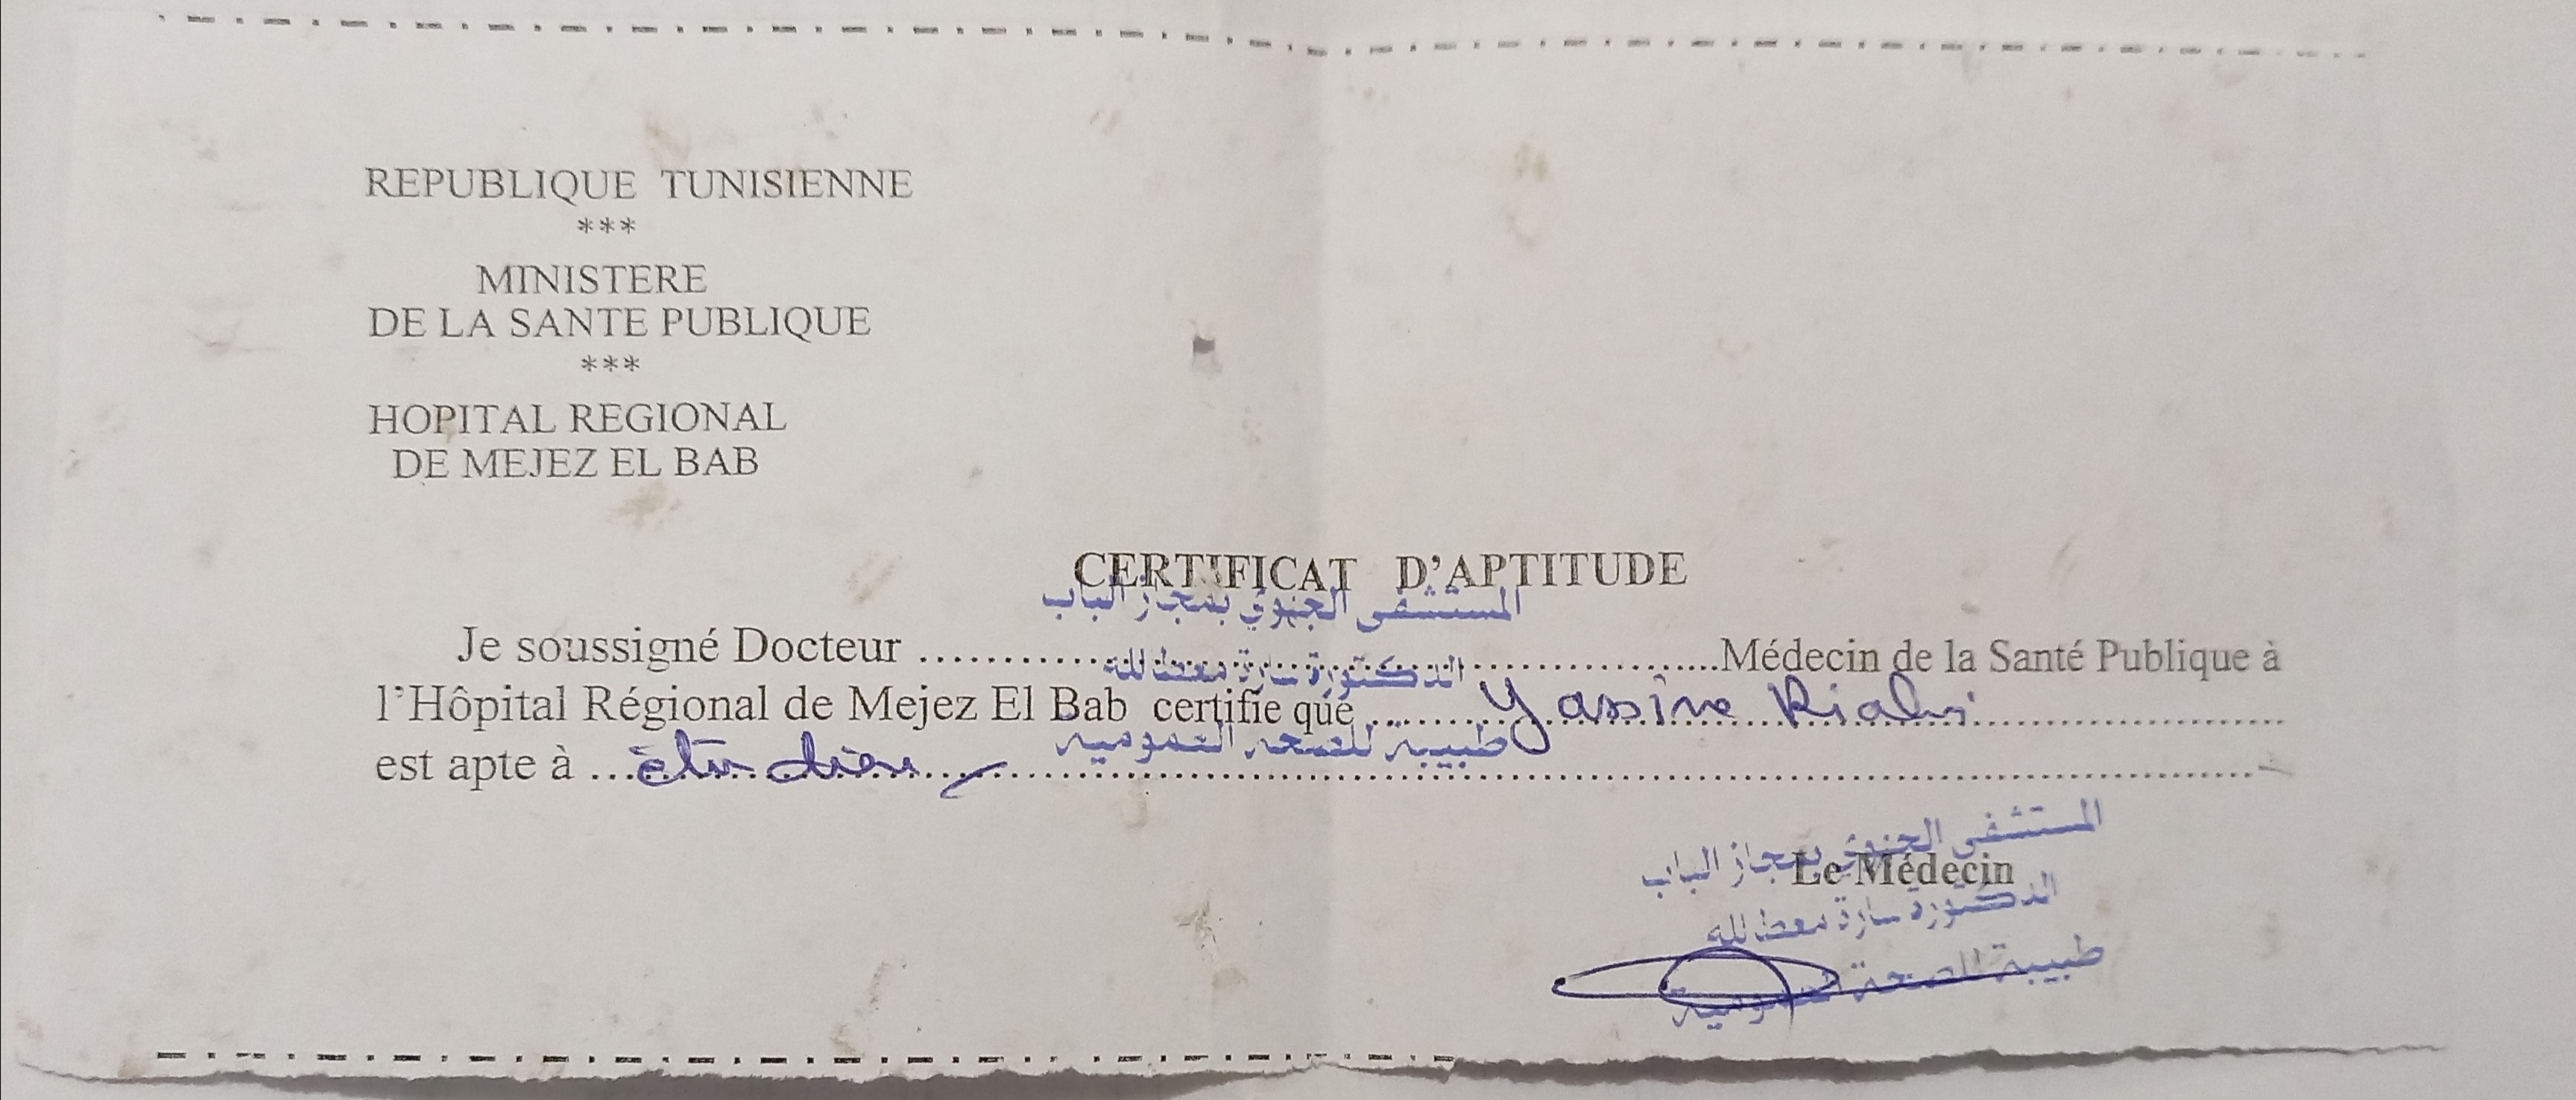 REPUBLIQUE TUNISIENNE
***
MINISTERE
DE LA SANTE PUBLIQUE
***
HOPITAL REGIONAL
DE MEJEZ EL BAB
CERTIFICAT D'APTITUDE
المستشفى الجهوي بمجاز الباب
Je soussigné Docteur ........................Médecin de la Santé Publique à
الدكتورة سارة معطالله
l'Hôpital Régional de Mejez El Bab certifie que ........ Yassine Riahi ........
طبيبة للصحة العمومية
est apte à ... étudier ........
المستشفى الجهوي بمجاز الباب
Le Médecin
الدكتورة سارة معطالله
طبيبة للصحة العمومية